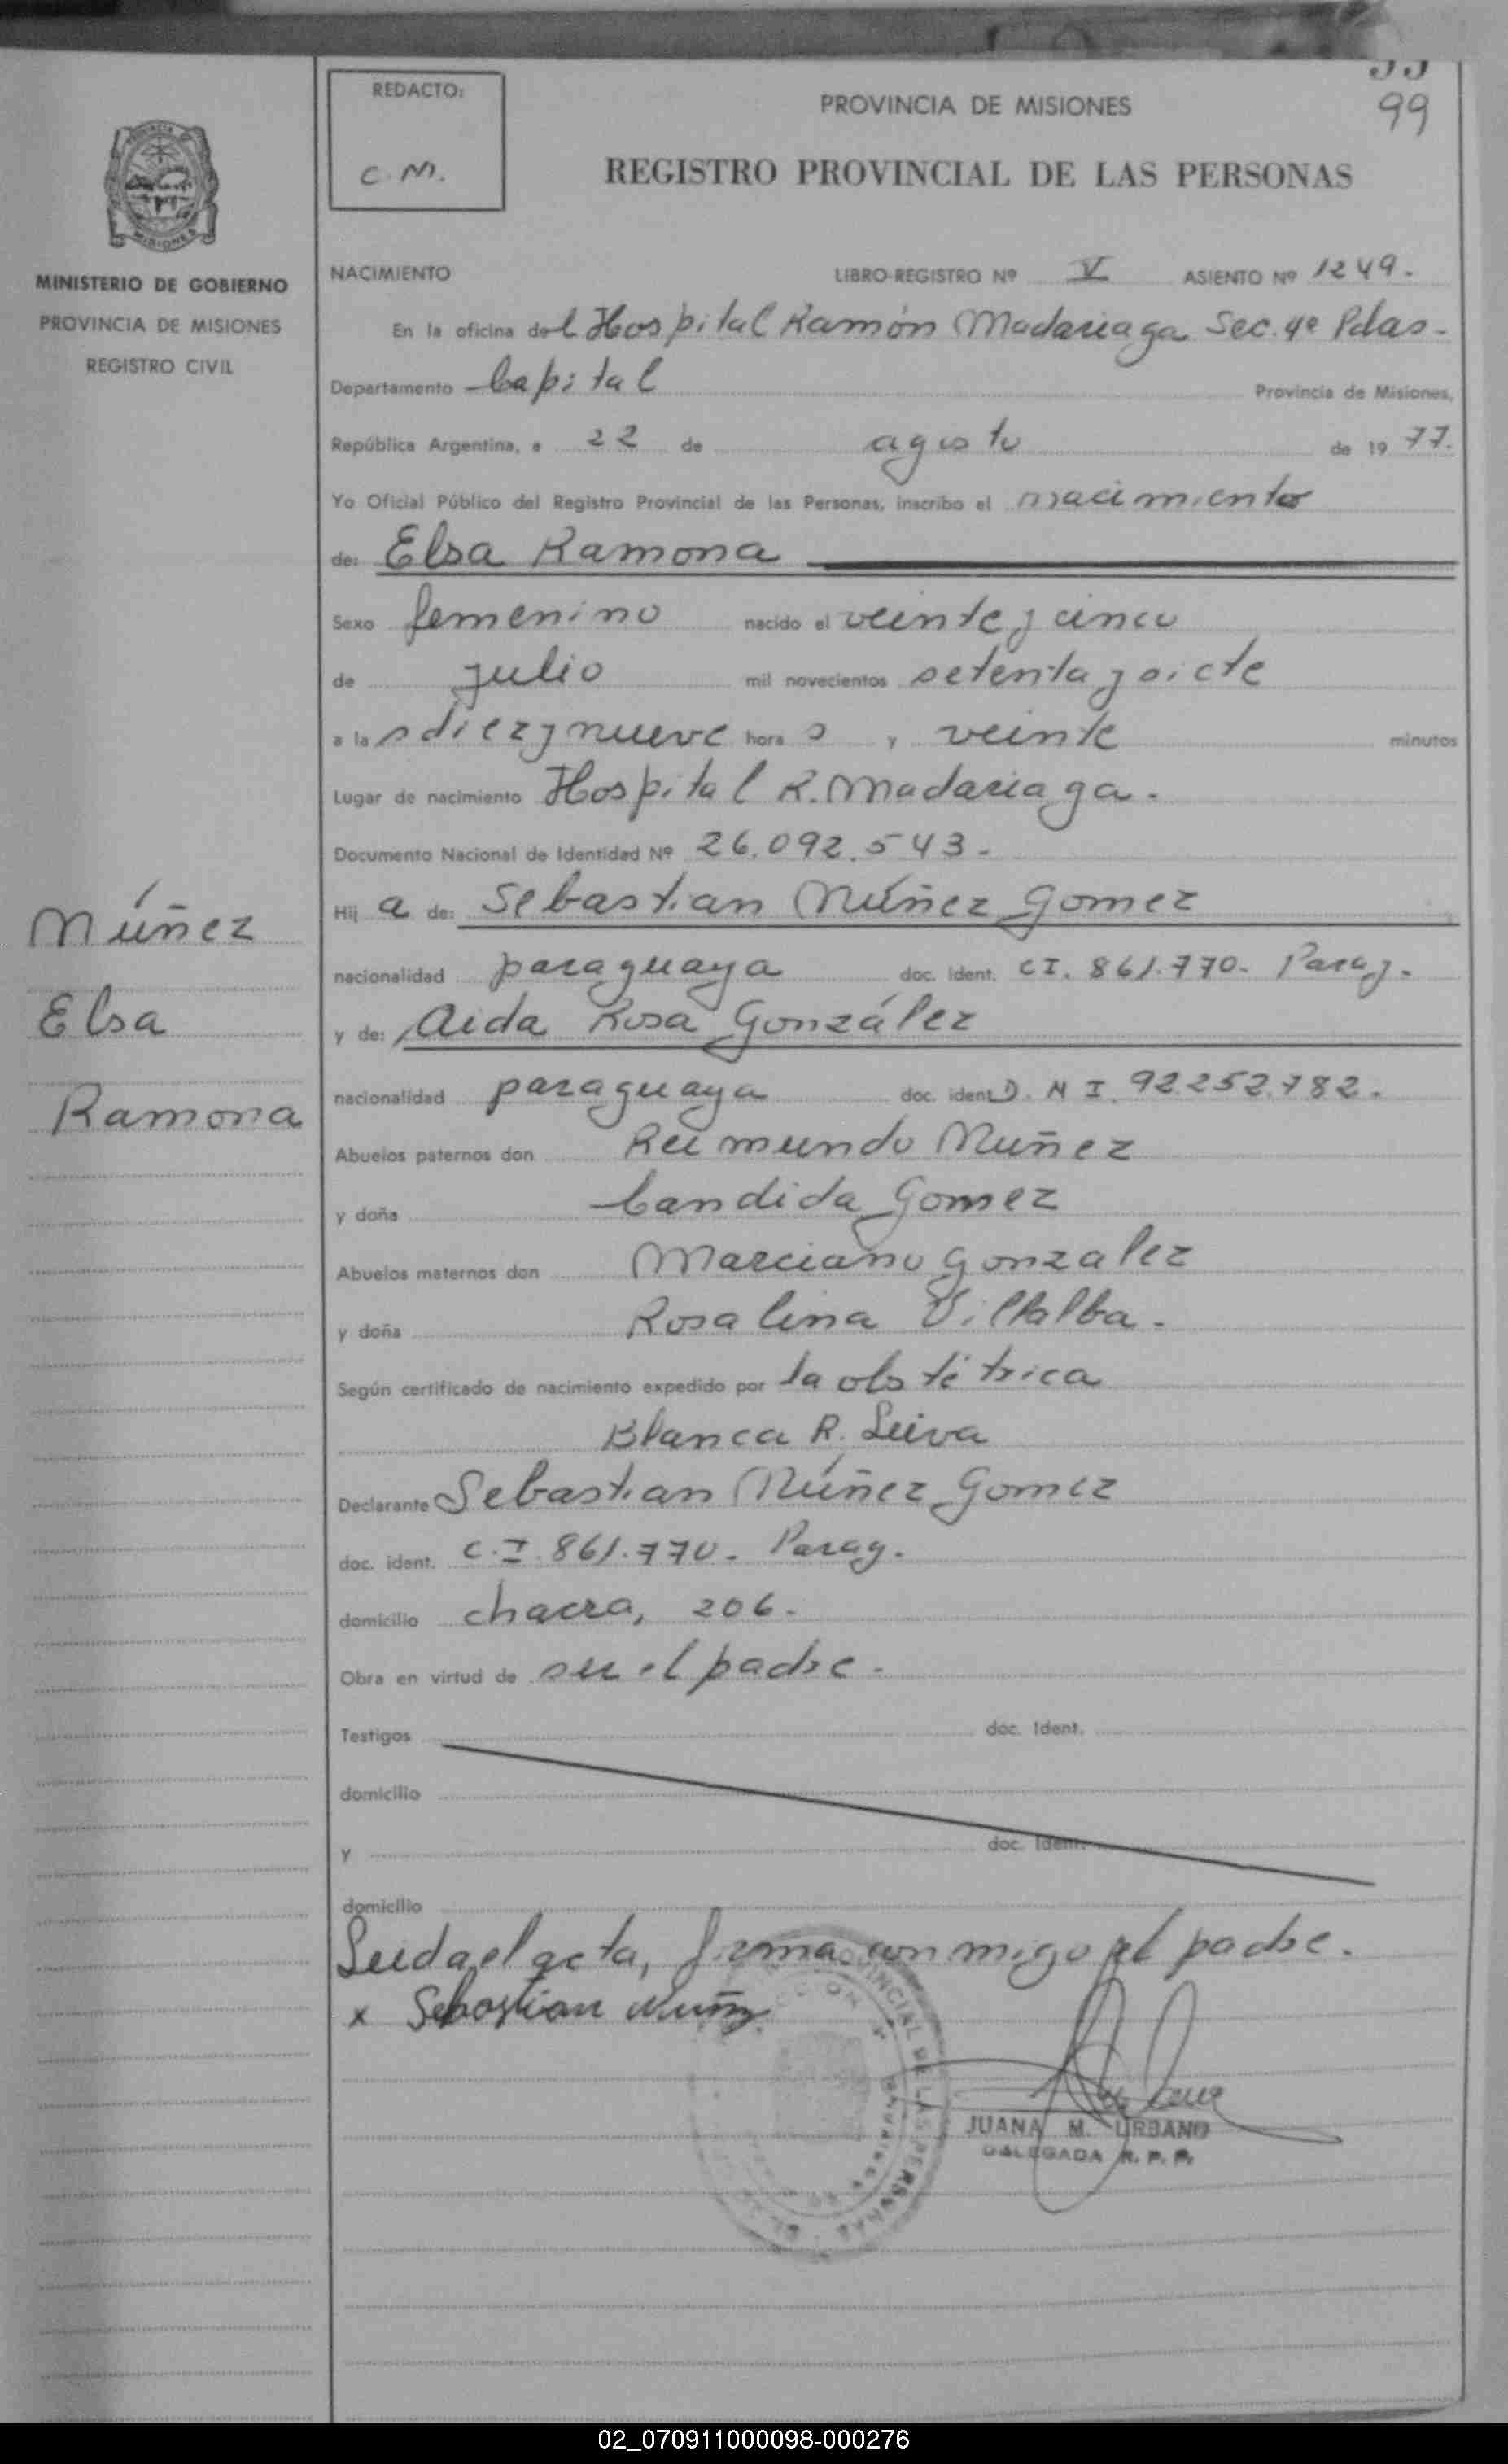 99
REDACTO:
C. M.
PROVINCIA DE MISIONES
REGISTRO PROVINCIAL DE LAS PERSONAS
MISIONES
MINISTERIO DE GOBIERNO
PROVINCIA DE MISIONES
REGISTRO CIVIL
Núñez
Elsa
Ramona
NACIMIENTO LIBRO-REGISTRO Nº V ASIENTO Nº 1249.
En la oficina del Hospital Ramón Madariaga Sec. 4ª Pdas-
Departamento Capital Provincia de Misiones,
República Argentina, a 22 de agosto de 1977.
Yo Oficial Público del Registro Provincial de las Personas, inscribo el nacimiento
de: Elsa Ramona
Sexo femenino nacido el veinte y cinco
de julio mil novecientos setenta y siete
a las diez y nueve horas y veinte minutos
Lugar de nacimiento Hospital R. Madariaga.
Documento Nacional de Identidad Nº 26.092.543.-
Hija de: Sebastian Núñez Gomez
nacionalidad paraguaya doc. ident. CI. 861.770- Parag.
y de: Aida Rosa González
nacionalidad paraguaya doc. ident D. N I. 92.252.782.
Abuelos paternos don Reimundo Nuñez
y doña Candida Gomez
Abuelos maternos don Marciano Gonzalez
y doña Rosalina Villalba.
Según certificado de nacimiento expedido por la obstétrica
Blanca R. Leiva
Declarante Sebastian Núñez Gomez
doc. ident. C.I. 861.770. Parag.
domicilio chacra, 206.
Obra en virtud de ser el padre.
Testigos doc. Ident.
domicilio
y doc. Ident.
domicilio
Leida el acta, firma conmigo el padre.
x Sebastian Nuñez
JUANA M. URBANO
DELEGADA R. P. P.
02_070911000098-000276